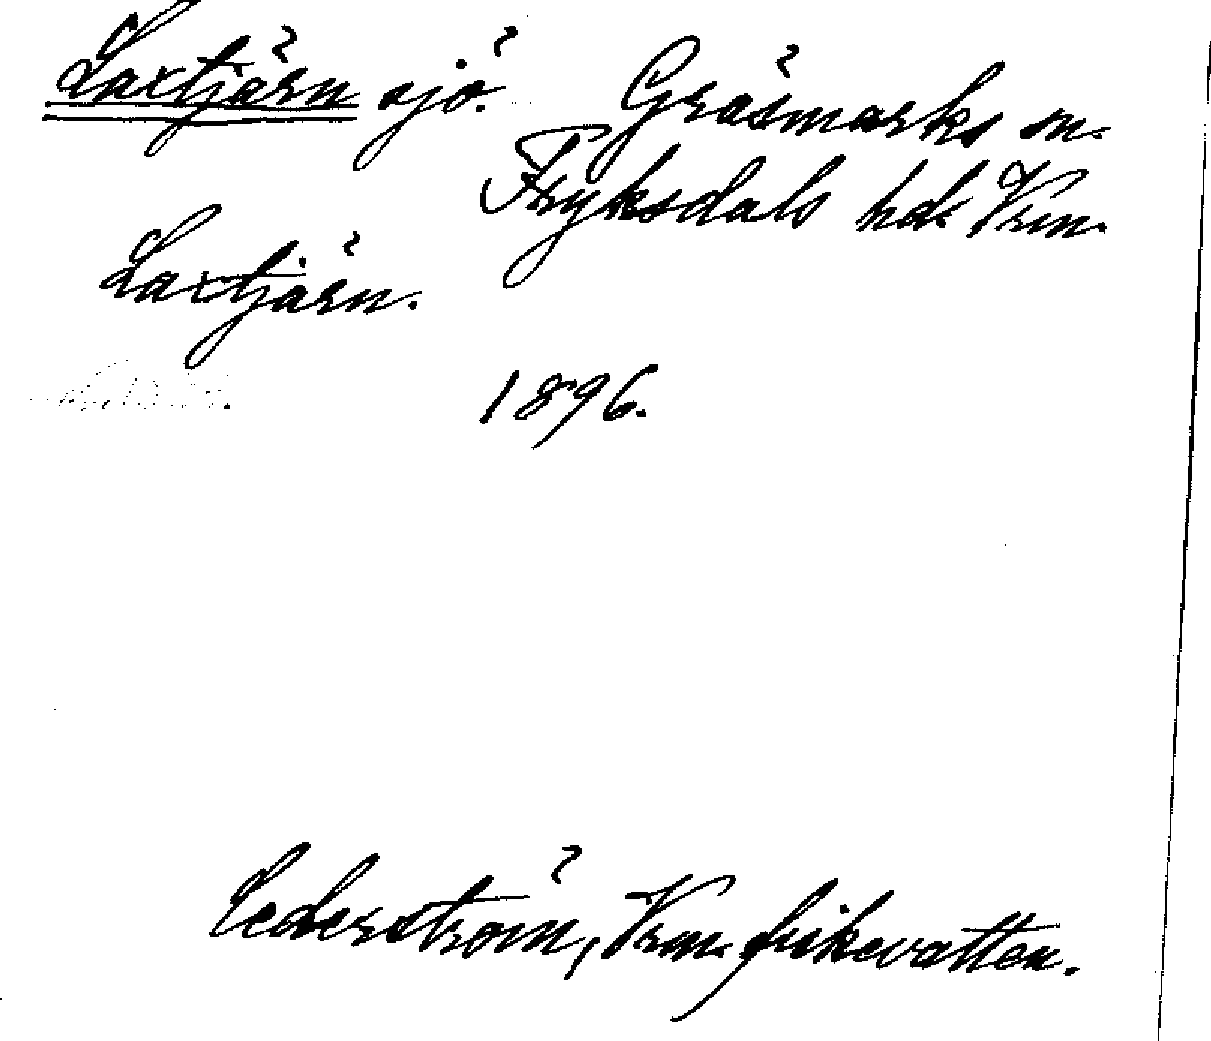 Laxtjärn sjö. Gräsmarks sn.
Fryksdals hd. Vrm.
Laxtjärn.
1896.
Cederström, Vrm. fiskevatten.